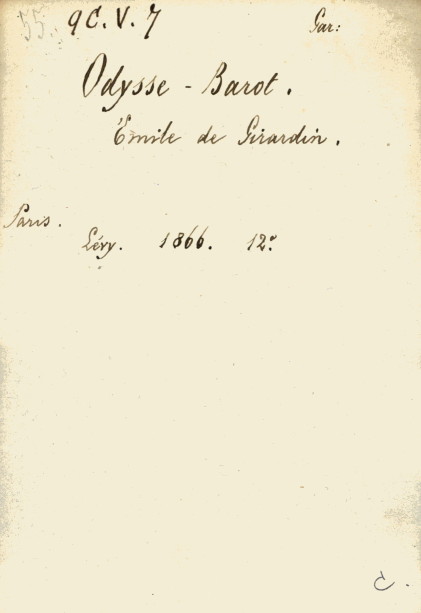 55. 9C.V.7 Gar:
Odysse-Barot.
Émile de Girardin.
Paris.
Lévy. 1866. 12º
C.